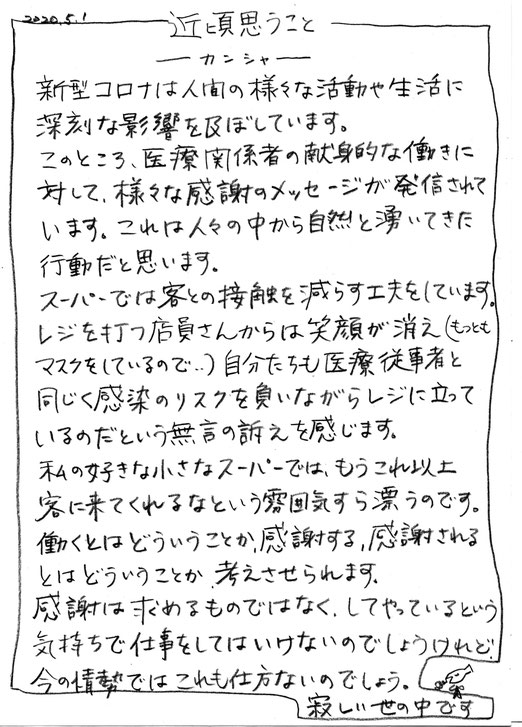 2020.5.1
近頃思うこと
ーカンシャー
新型コロナは人間の様々な活動や生活に
深刻な影響を及ぼしています。
このところ、医療関係者の献身的な働きに
対して、様々な感謝のメッセージが発信されて
います。これは人々の中から自然と湧いてきた
行動だと思います。
スーパーでは客との接触を減らす工夫をしています。
レジを打つ店員さんからは笑顔が消え(もっとも
マスクをしているので‥)自分たちも医療従事者と
同じく感染のリスクを負いながらレジに立って
いるのだという無言の訴えを感じます。
私の好きな小さなスーパーでは、もうこれ以上
客に来てくれるなという雰囲気すら漂うのです。
働くとはどういうことか、感謝する、感謝される
とはどういうことか、考えさせられます。
感謝は求めるものではなく、してやっているという
気持ちで仕事をしてはいけないのでしょうけれど
今の情勢ではこれも仕方ないのでしょう。
寂しい世の中です